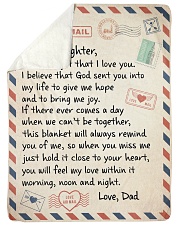 MAIL
ghter,
t that I love you.
I believe that God sent you into
my life to give me hope
and to bring me joy.
If there ever comes a day
when we can't be together,
this blanket will always remind
you of me, so when you miss me
just hold it close to your heart,
you will feel my love within it
morning, noon and night.
Love, Dad